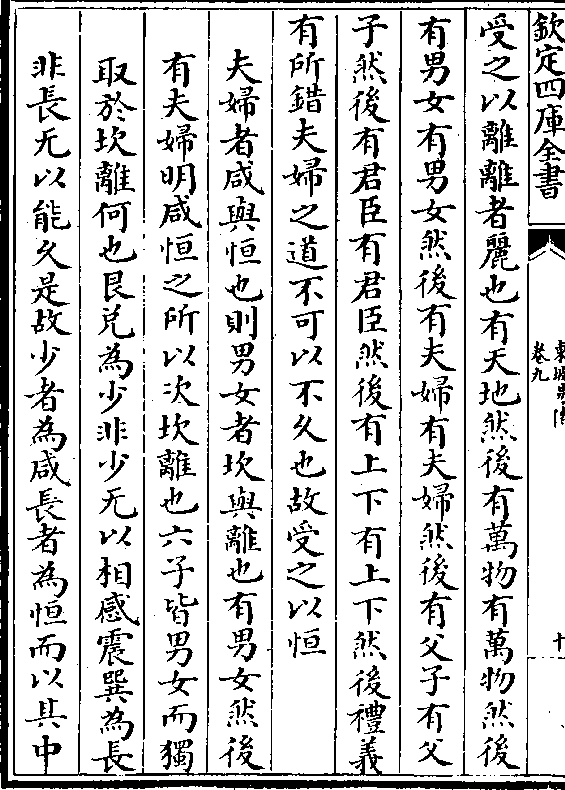 欽定四庫全書
東坡易傳
卷九
十
受之以離離者麗也有天地然後有萬物有萬物然後
有男女有男女然後有夫婦有夫婦然後有父子有父
子然後有君臣有君臣然後有上下有上下然後禮義
有所錯夫婦之道不可以不久也故受之以恒
夫婦者咸與恒也則男女者坎與離也有男女然後
有夫婦明咸恒之所以次坎離也六子皆男女而獨
取於坎離何也艮兑為少非少无以相感震巽為長
非長无以能久是故少者為咸長者為恒而以其中